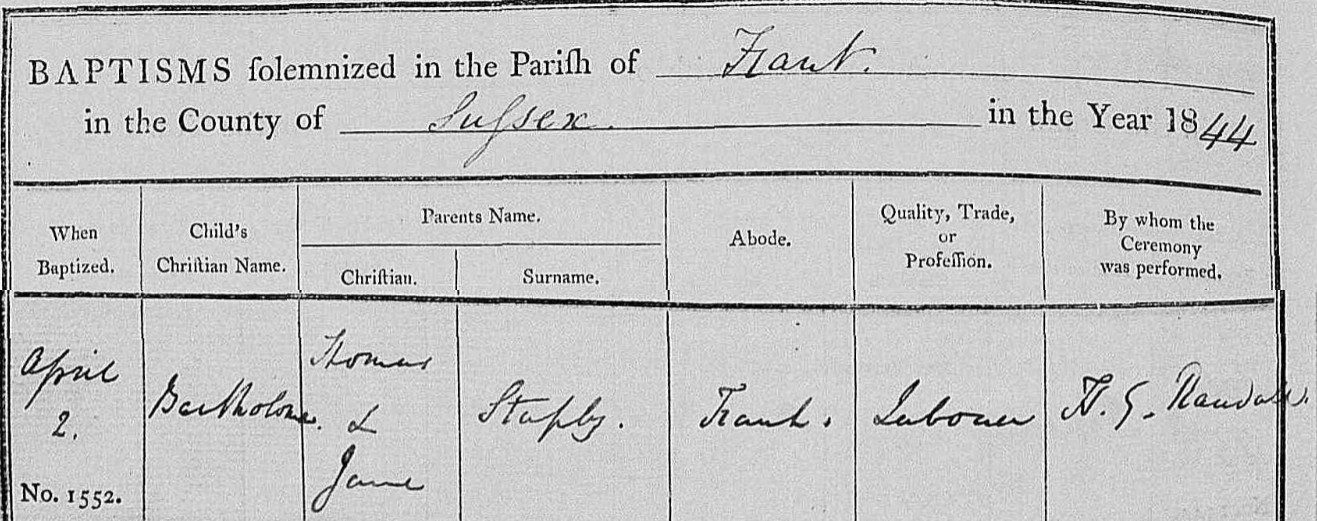 BAPTISMS ſolemnized in the Pariſh of Frant.
in the County of Suſsex. in the Year 1844
When Baptized.
Child's Chriſtian Name.
Parents Name.
Chriſtian.
Surname.
Abode.
Quality, Trade, or Profeſſion.
By whom the Ceremony was performed.
April
2.
No. 1552.
Thomas
&
Jane
Staply.
Frant.
Labourer
H. G. Randall.